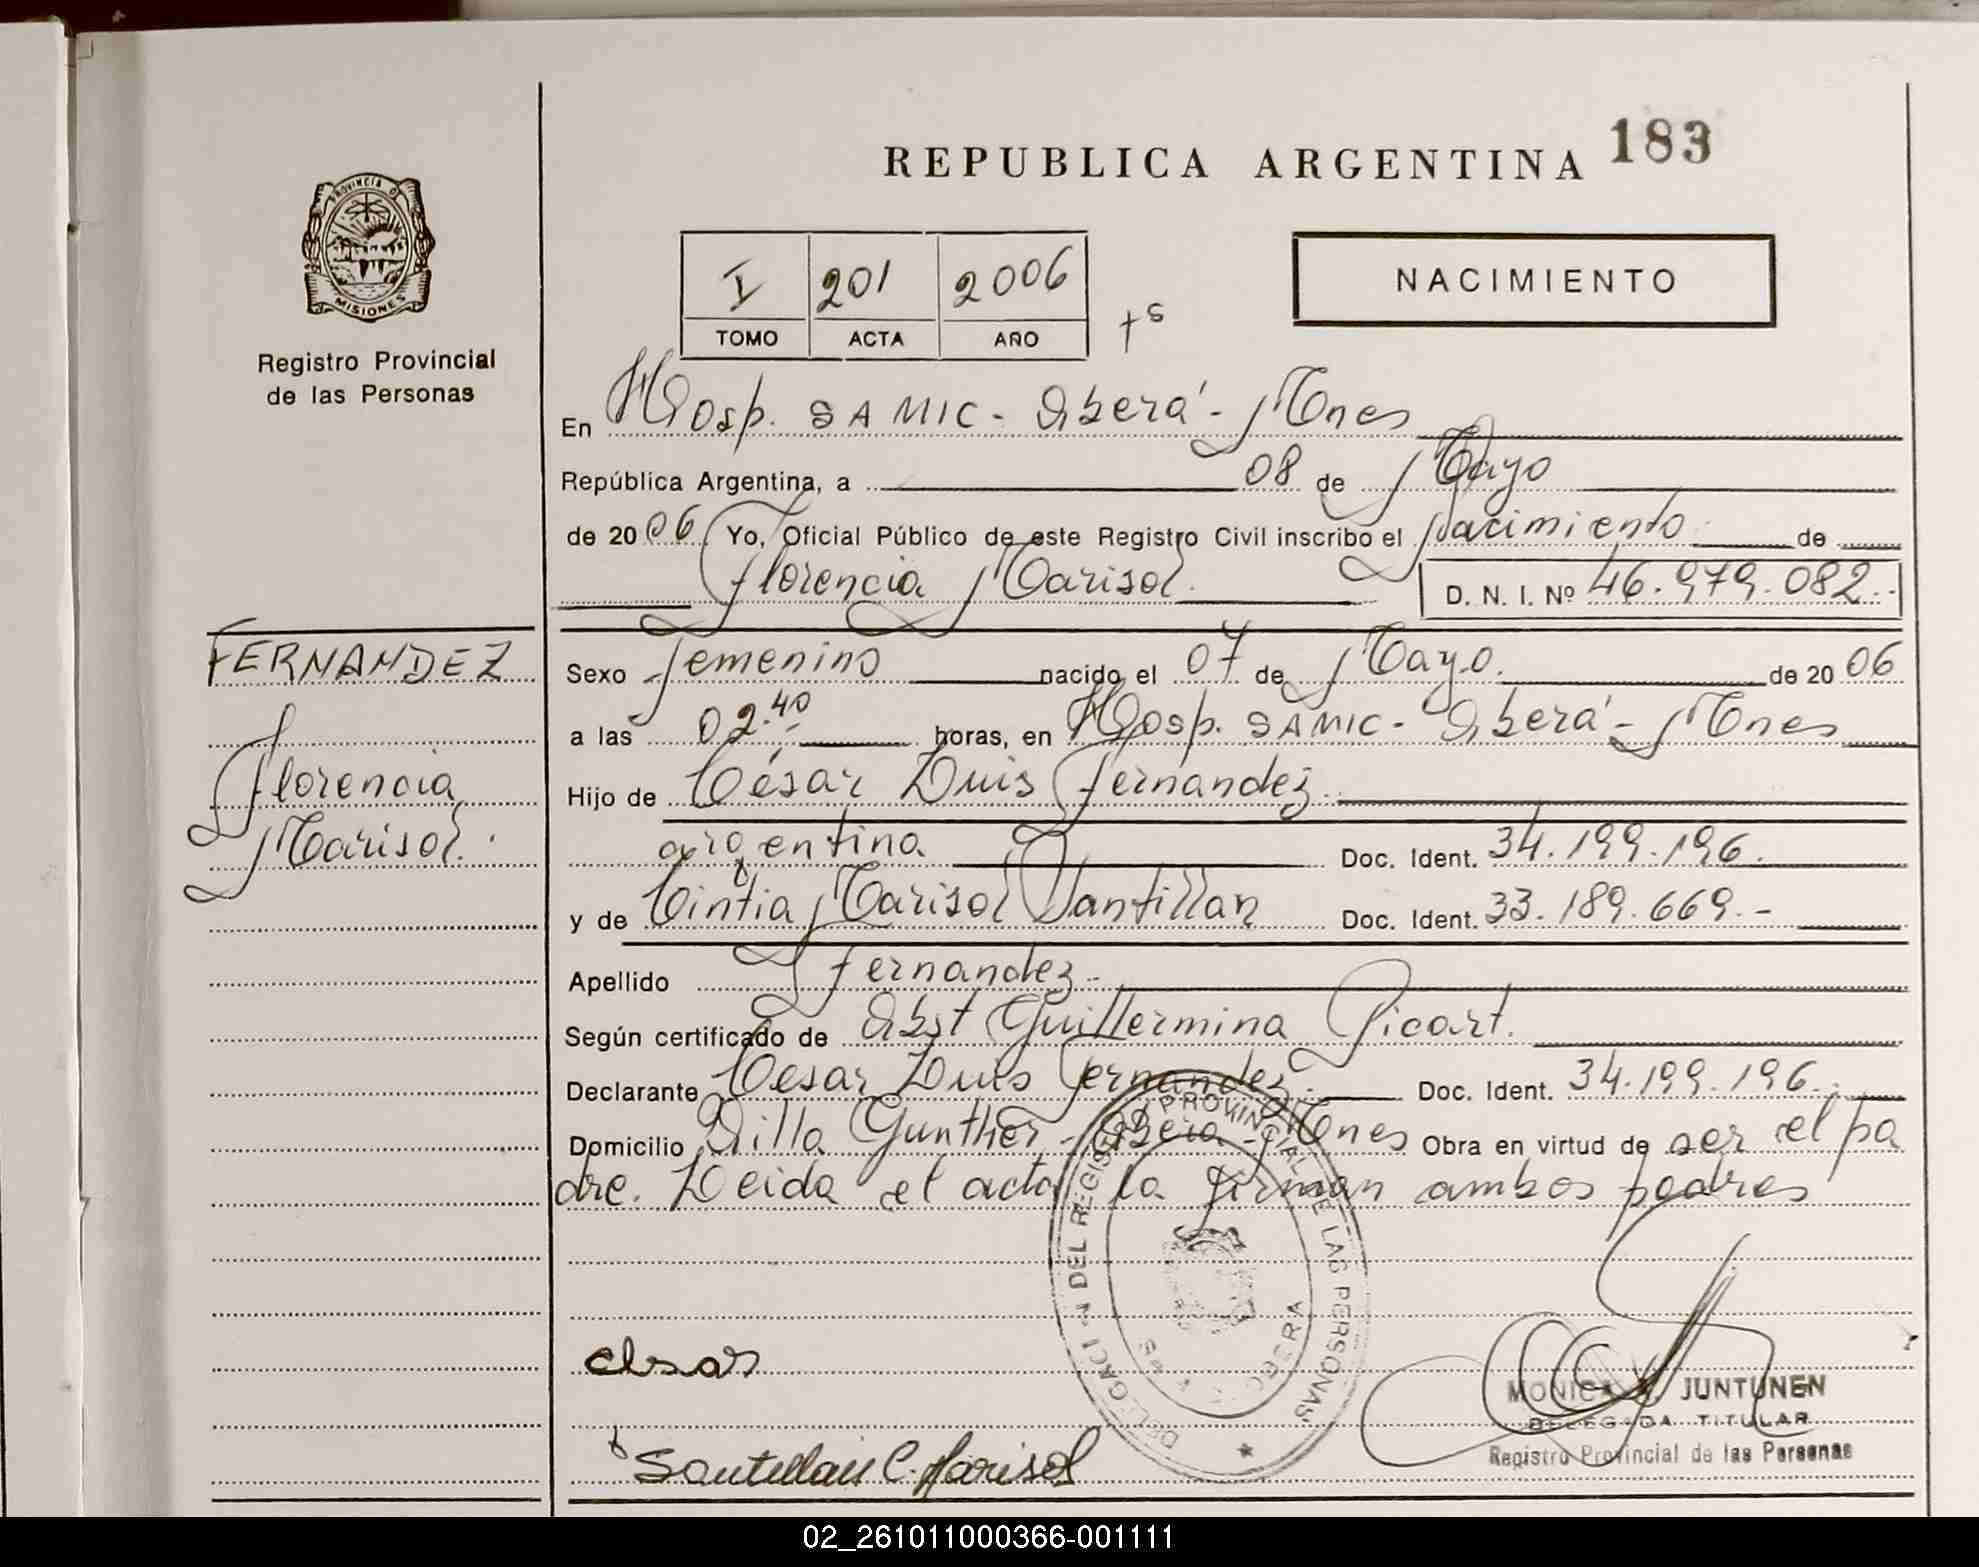 REPUBLICA ARGENTINA 183
PROVINCIA DE MISIONES
Registro Provincial
de las Personas
I 201 2006
TOMO ACTA AÑO
NACIMIENTO
En Hosp. SAMIC - Oberá - Mnes
República Argentina, a 08 de Mayo
de 2006 Yo, Oficial Público de este Registro Civil inscribo el Nacimiento de
Florencia Marisol. D. N. I. Nº 46.979.082.-
FERNANDEZ
Florencia
Marisol.
Sexo femenino nacido el 07 de Mayo. de 2006
a las 02.40 horas, en Hosp. SAMIC - Oberá - Mnes
Hijo de César Luis Fernandez.
argentina Doc. Ident. 34.199.196.
y de Cintia Marisol Santillan Doc. Ident. 33.189.669.-
Apellido Fernandez.-
Según certificado de Obst Guillermina Picart.
Declarante Cesar Luis Fernandez.- Doc. Ident. 34.199.196.-
Domicilio Villa Gunther - Oberá - Mnes Obra en virtud de ser el pa
dre. Leida el acta la firman ambos padres
DEL REGISTRO PROVINCIAL DE LAS PERSONAS
Santillan C. Marisol
MONICA JUNTUNEN
DELEGADA TITULAR
Registro Provincial de las Personas
02_261011000366-001111